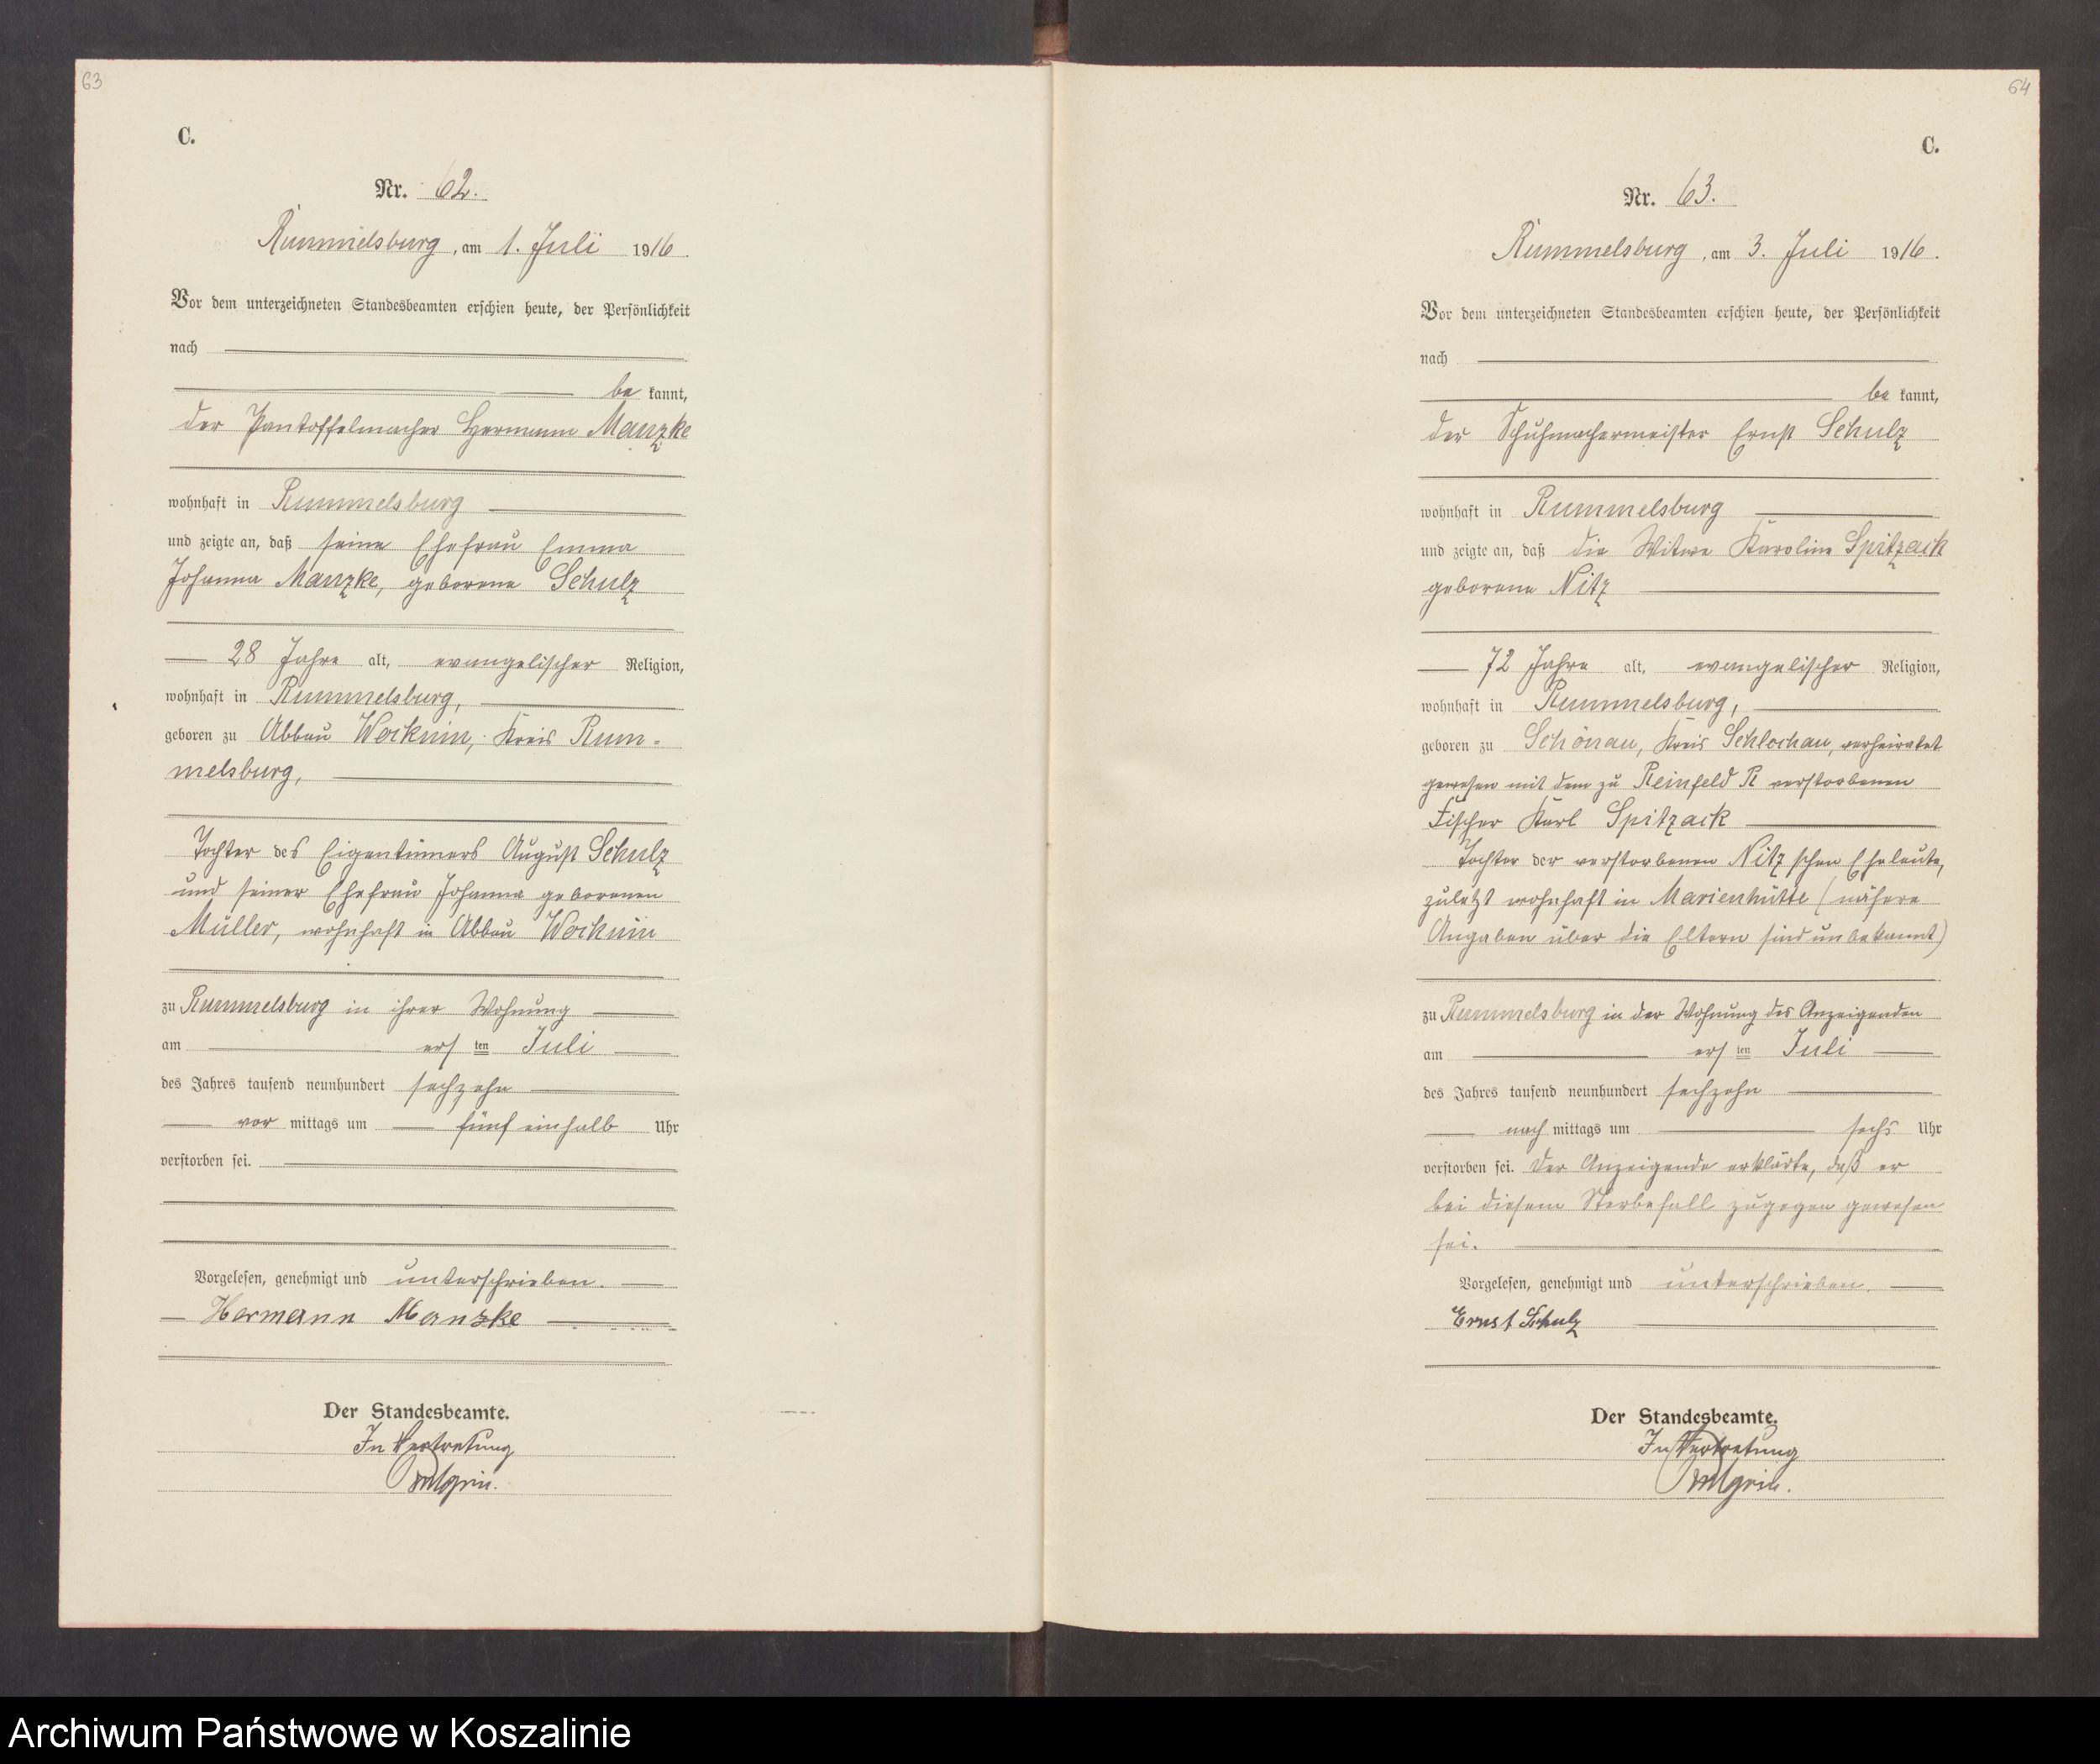 63
C.
Nr. 62.
Rummelsburg, am 1. Juli 1916.
Vor dem unterzeichneten Standesbeamten erschien heute, der Persönlichkeit
nach
be kannt,
der Pantoffelmacher Hermann Manzke
wohnhaft in Rummelsburg
und zeigte an, daß seine Ehefrau Emma
Johanna Manzke, geborene Schulz
28 Jahre alt, evangelischer Religion,
wohnhaft in Rummelsburg,
geboren zu Abbau Wocknin, Kreis Rum-
melsburg,
Tochter des Eigentümers August Schulz
und seiner Ehefrau Johanna geborenen
Müller, wohnhaft in Abbau Wocknin
zu Rummelsburg in ihrer Wohnung
am ersten Juli
des Jahres tausend neunhundert sechzehn
vor mittags um fünf einhalb Uhr
verstorben sei.
Vorgelesen, genehmigt und unterschrieben.
Hermann Manzke
Der Standesbeamte.
In Vertretung
64
C.
Nr. 63.
Rummelsburg, am 3. Juli 1916.
Vor dem unterzeichneten Standesbeamten erschien heute, der Persönlichkeit
nach
be kannt,
der Schuhmachermeister Ernst Schulz
wohnhaft in Rummelsburg
und zeigte an, daß die Witwe Karoline Spitzack
geborene Nitz
72 Jahre alt, evangelischer Religion,
wohnhaft in Rummelsburg,
geboren zu Schönau, Kreis Schlochau, verheiratet
gewesen mit dem zu Reinfeld R verstorbenen
Fischer Karl Spitzack
Tochter der verstorbenen Nitz'schen Eheleute,
zuletzt wohnhaft in Marienhütte (nähere
Angaben über die Eltern sind unbekannt)
zu Rummelsburg in der Wohnung des Anzeigenden
am ersten Juli
des Jahres tausend neunhundert sechzehn
nach mittags um sechs Uhr
verstorben sei. Der Anzeigende erklärte, daß er
bei diesem Sterbefall zugegen gewesen
sei.
Vorgelesen, genehmigt und unterschrieben.
Ernst Schulz
Der Standesbeamte.
In Vertretung
Archiwum Państwowe w Koszalinie